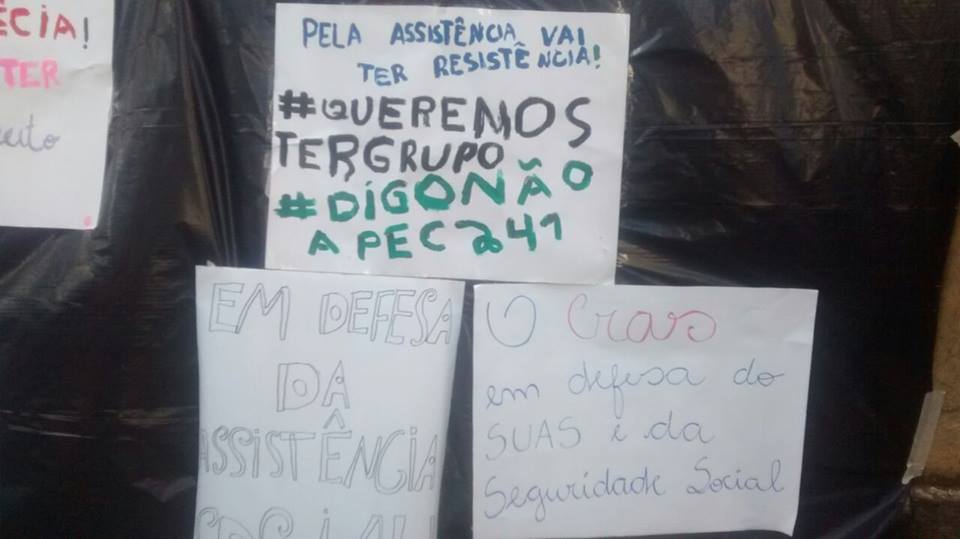 PELA ASSISTÊNCIA VAI
TER RESISTÊNCIA!
#QUEREMOS
TERGRUPO
#DIGONÃO
A PEC 241
EM DEFESA
DA
ASSISTÊNCIA
O Cras
em defesa do
SUAS e da
Seguridade Social
TER